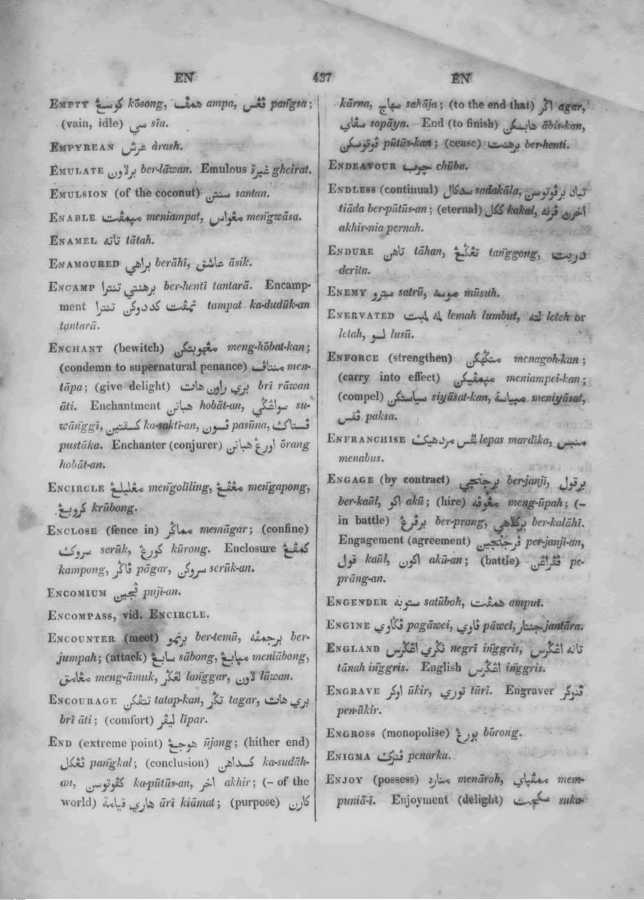 EN 437 EN
EMPTY كوسڠ kōsong, همڤ ampa, ڠقس pang̃sa;
(vain, idle) سي sīa.
EMPYREAN عرش ārash.
EMULATE برلاون ber-lāwan. Emulous غيرة gheirat.
EMULSION (of the coconut) سنتن santan.
ENABLE meniampat, meng̃wāsa.
ENAMEL تاته tātah.
ENAMOURED براهي berāhī, عاشق āsik.
ENCAMP برهنتي تنترا ber-henti tantarā. Encamp-
ment تمڤت كددوكن تنترا tampat ka-dudūk-an
tantarā.
ENCHANT (bewitch) meng-hōbat-kan;
(condemn to supernatural penance) men-
tāpa; (give delight) بري راون هات brī rāwan
āti. Enchantment هباتن hobāt-an, su-
wāng̃gī, ka-saktī-an, pasūna,
pustāka. Enchanter (conjurer) اورڠ هباتن ōrang
hobāt-an.
ENCIRCLE meng̃olīling, meng̃apong,
krūbong.
ENCLOSE (fence in) memāgar; (confine)
serūk, كورڠ kūrong. Enclosure
kampong, ڤاڬر pāgar, سروكن serūk-an.
ENCOMIUM ڤجين puji-an.
ENCOMPASS, vid. ENCIRCLE.
ENCOUNTER (meet) برتمو ber-temū, برجمڤه ber-
jumpah; (attack) سابڠ sābong, meniābong,
meng-āmuk, لڠڬر lang̃gar, لاون lāwan.
ENCOURAGE تتڤكن tatap-kan, تڬر tagar, بري هات
brī āti; (comfort) ليڤر līpar.
END (extreme point) هوجڠ ūjong; (hither end)
ڤڠكل pang̃kal; (conclusion) كسداهن ka-sudāh-
an, كڤوتوسن ka-pūtūs-an, اخر akhir; (– of the
world) هاري قيامة ārī kiāmat; (purpose) كارن
kārna, سهاج sahāja; (to the end that) اڬر agar,
سڤاي sopāya. End (to finish) هابسكن ābis-kan,
ڤوتوسكن pūtūs-kan; (cease) برهنت ber-henti.
ENDEAVOUR چوب chūba.
ENDLESS (continual) سدكال sadakāla, تياد برڤوتوسن
tiāda ber-pūtūs-an; (eternal) ككل kakal, اخرن ڤرنه
akhir-nia pernah.
ENDURE تاهن tāhan, تڠݢڠ tang̃gong, دريت
derīta.
ENEMY سترو satrū, موسه mūsuh.
ENERVATED لمه لمبت lemah lumbut, لته leteh or
letah, لسو lusū.
ENFORCE (strengthen) منݢهكن menagoh-kan;
(carry into effect) meniampei-kan;
(compel) سياستكن siyāsat-kan, meniyāsat,
ڤقس paksa.
ENFRANCHISE لڤس مردهيك lepas mardīka,
menabus.
ENGAGE (by contract) برجنجي ber-janjī, برقول
ber-kaūl, اكو akū; (hire) meng-ūpah; (–
in battle) برڤرڠ ber-prang, بركلاهي ber-kalāhī.
Engagement (agreement) ڤرجنجين per-janjī-an,
قول kaūl, اكون akū-an; (battle) ڤڤراڠن pe-
prāng-an.
ENGENDER ستوبه satūboh, همڤت amput.
ENGINE ڤݢاوي pagāwei, ڤاوي pāwei, جنتار jantāra.
ENGLAND نݢري اڠݢرس negrī ing̃gris, تانه اڠݢرس
tānah ing̃gris. English اڠݢرس ing̃gris.
ENGRAVE اوكر ūkir, توري tūrī. Engraver ڤنوكر
pen-ūkir.
ENGROSS (monopolise) بورڠ būrong.
ENIGMA ڤنرك penarka.
ENJOY (possess) منارہ menāroh, mem-
puniā-ī. Enjoyment (delight) suka-